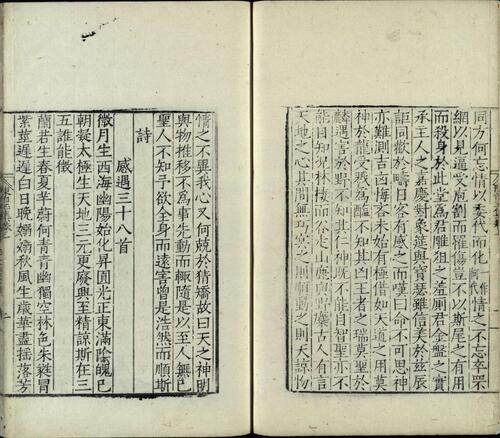 同方何忘情以委代而化一作阿代不忘卒罹
網以見逼受庖割而罹傷豈不以斯尾之有用
而殺身於此堂為君雕俎之羞厠君金盤之實
承主人之嘉慶對象筵與寶瑟雖信美於茲辰
詎同歡於疇日客有感之而嘆曰命不可思神
亦難測吉凶悔吝未始有極借如天道之用莫
神於龍受戮為醢不知其凶王者之瑞莫聖於
麟遇害於野不知其仁神既不能自智聖亦不
能自知況林棲而谷走山鹿與野麋古人有言
天地之心其間無巧冥之則順動之則夭諒物
情之不異我心又何兢於猜矯故曰天之神明
與物推移不為事先動而輒隨是以至人無已
聖人不知予欲全身而遠害曾是浩然而順斯
詩
感遇三十八首
微月生西海幽陽始化昇圓光正東滿陰魄已
朝凝太極生天地三元更廢興至精諒斯在三
五誰能徵
蘭若生春夏芊蔚何青青幽獨空林色朱蕤冒
紫莖遲遲白日晚嫋嫋秋風生歲華盡搖落芳